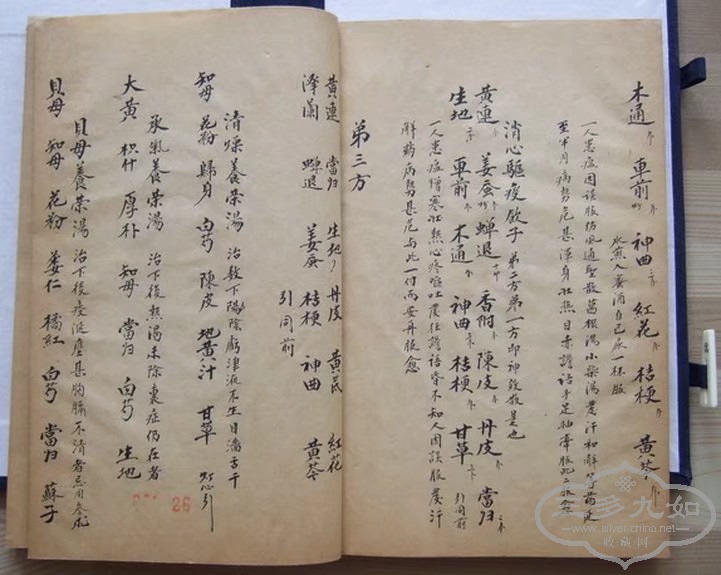 木通 車前 神曲 紅花 桔梗 黃芩
水煎入蜜滴自己尿一杯服
一人患疫因誤服防風通聖散葛根湯小柴湯發汗和解等藥延
至半月病勢危甚渾身壯熱目赤譫語手足抽牽服此二
消心驅疫飲子 第二方第一方即神效散是也
黃連 姜蚕 蟬退 香附 陳皮 丹皮 當归
生地 車前 木通 神曲 桔梗 甘草 引同前
一人患疫憎寒壯熱心疼嘔吐發狂譫語昏不知人因誤服發汗
解藥病勢甚危与此一付而安再服愈
第三方
黃連 當归 生地 丹皮 黃芪 紅花
澤蘭 蟬退 姜蚕 桔梗 神曲 黃芩
引同前
清燥養荣湯 治数下陽除虧津液不生目濇舌干
知母 花粉 歸身 白芍 陳皮 地黃汁 甘草
承氣養荣湯 治下後熱渴未除裏症仍在者
大黃 枳什 厚朴 知母 當归 白芍 生地
貝母養荣湯 治下後痰涎壅甚胸膈不清者忌用参朮
貝母 知母 花粉 蒌仁 橘紅 白芍 當归 蘇子
26
三多九如
www.silyerchina.net
收藏网